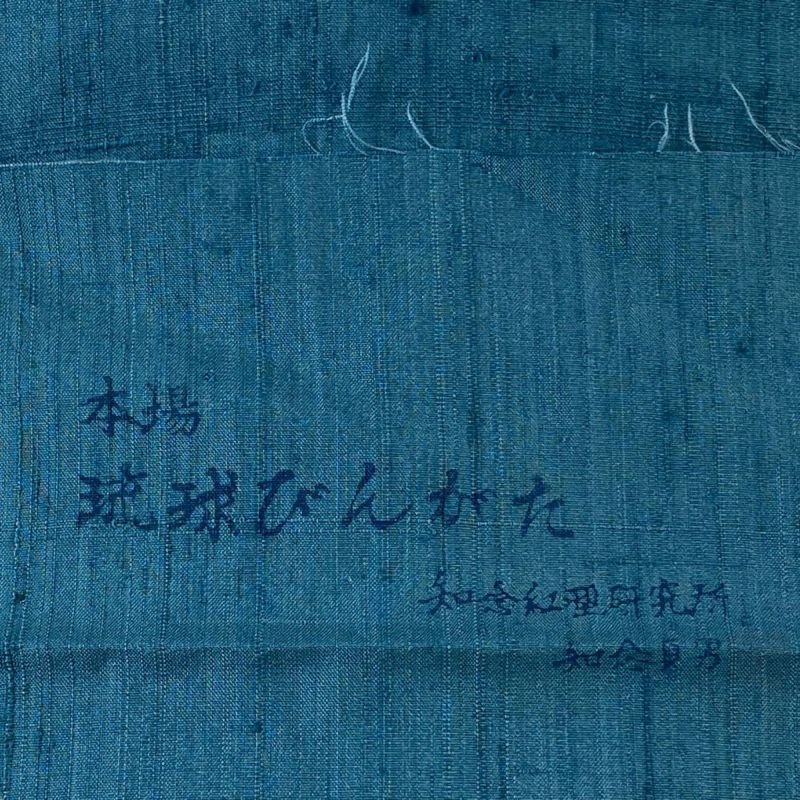 本場
琉球びんがた
知念紅型研究所
知念貞男